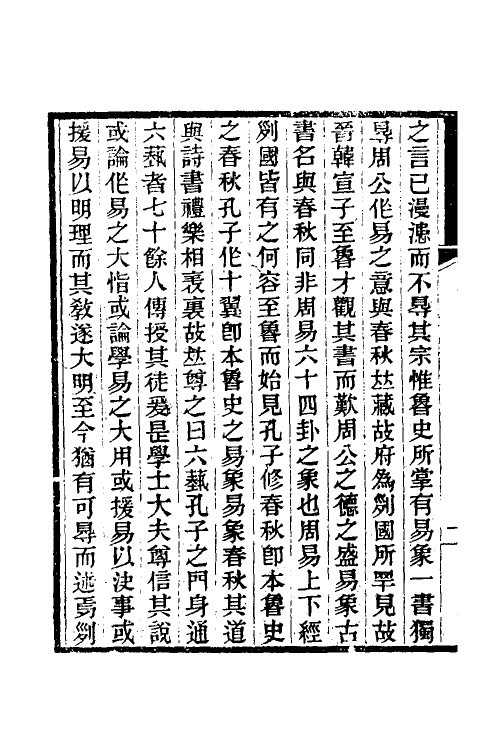 之言已漫漶而不㝵其宗惟魯史所掌有易象一書獨
㝵周公作易之意與春秋𠀤藏故府為列國所罕見故
晉韓宣子至魯才觀其書而歎周公之德之盛易象古
書名與春秋同非周易六十四卦之象也周易上下經
列國皆有之何容至魯而始見孔子修春秋卽本魯史
之春秋孔子作十翼卽本魯史之易象易象春秋其道
與詩書禮樂相表裏故𠀤尊之曰六蓺孔子之門身通
六蓺者七十餘人傳授其徒爰是學士大夫尊信其說
或論作易之大恉或論學易之大用或援易以決事或
援易以明理而其敎遂大明至今猶有可㝵而述焉列
二